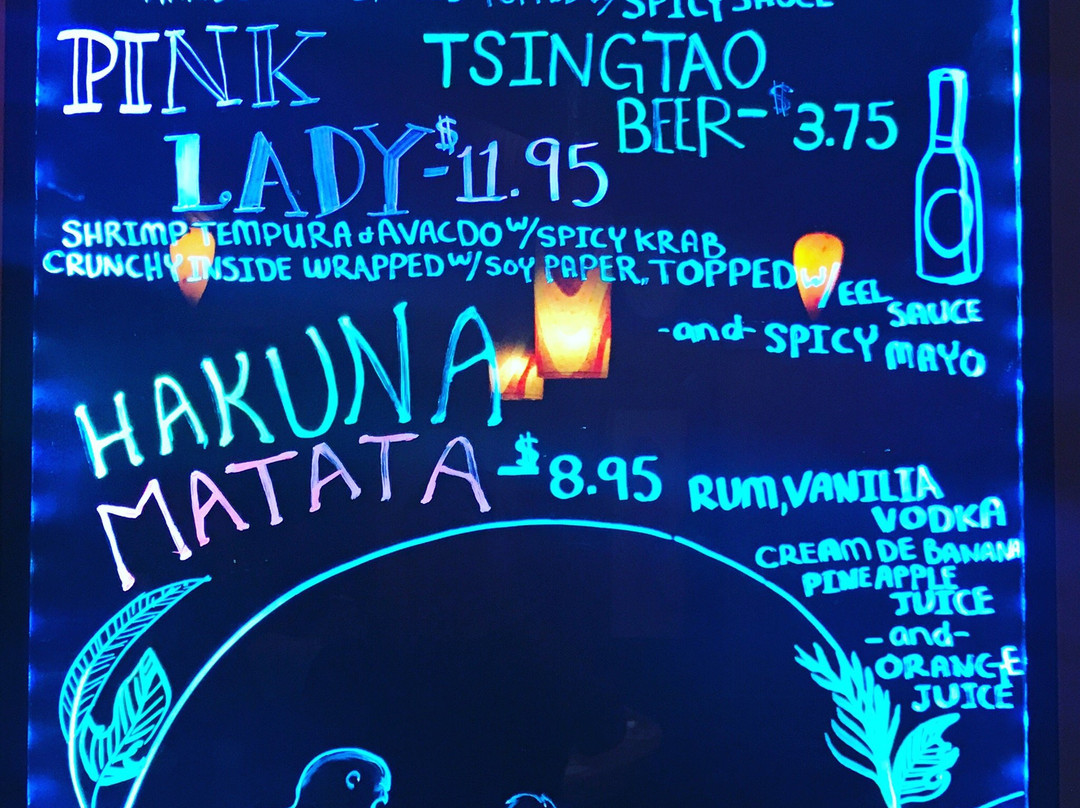 SPICY SAUCE
PINK
LADY-$11.95
TSINGTAO
BEER-$3.75
SHRIMP TEMPURA & AVACDO W/SPICY KRAB
CRUNCHY INSIDE WRAPPED W/ SOY PAPER, TOPPED W/ EEL
SAUCE
-and- SPICY MAYO
HAKUNA
MATATA $8.95
RUM, VANILIA
VODKA
CREAM DE BANANA
PINEAPPLE
JUICE
-and-
ORANGE
JUICE